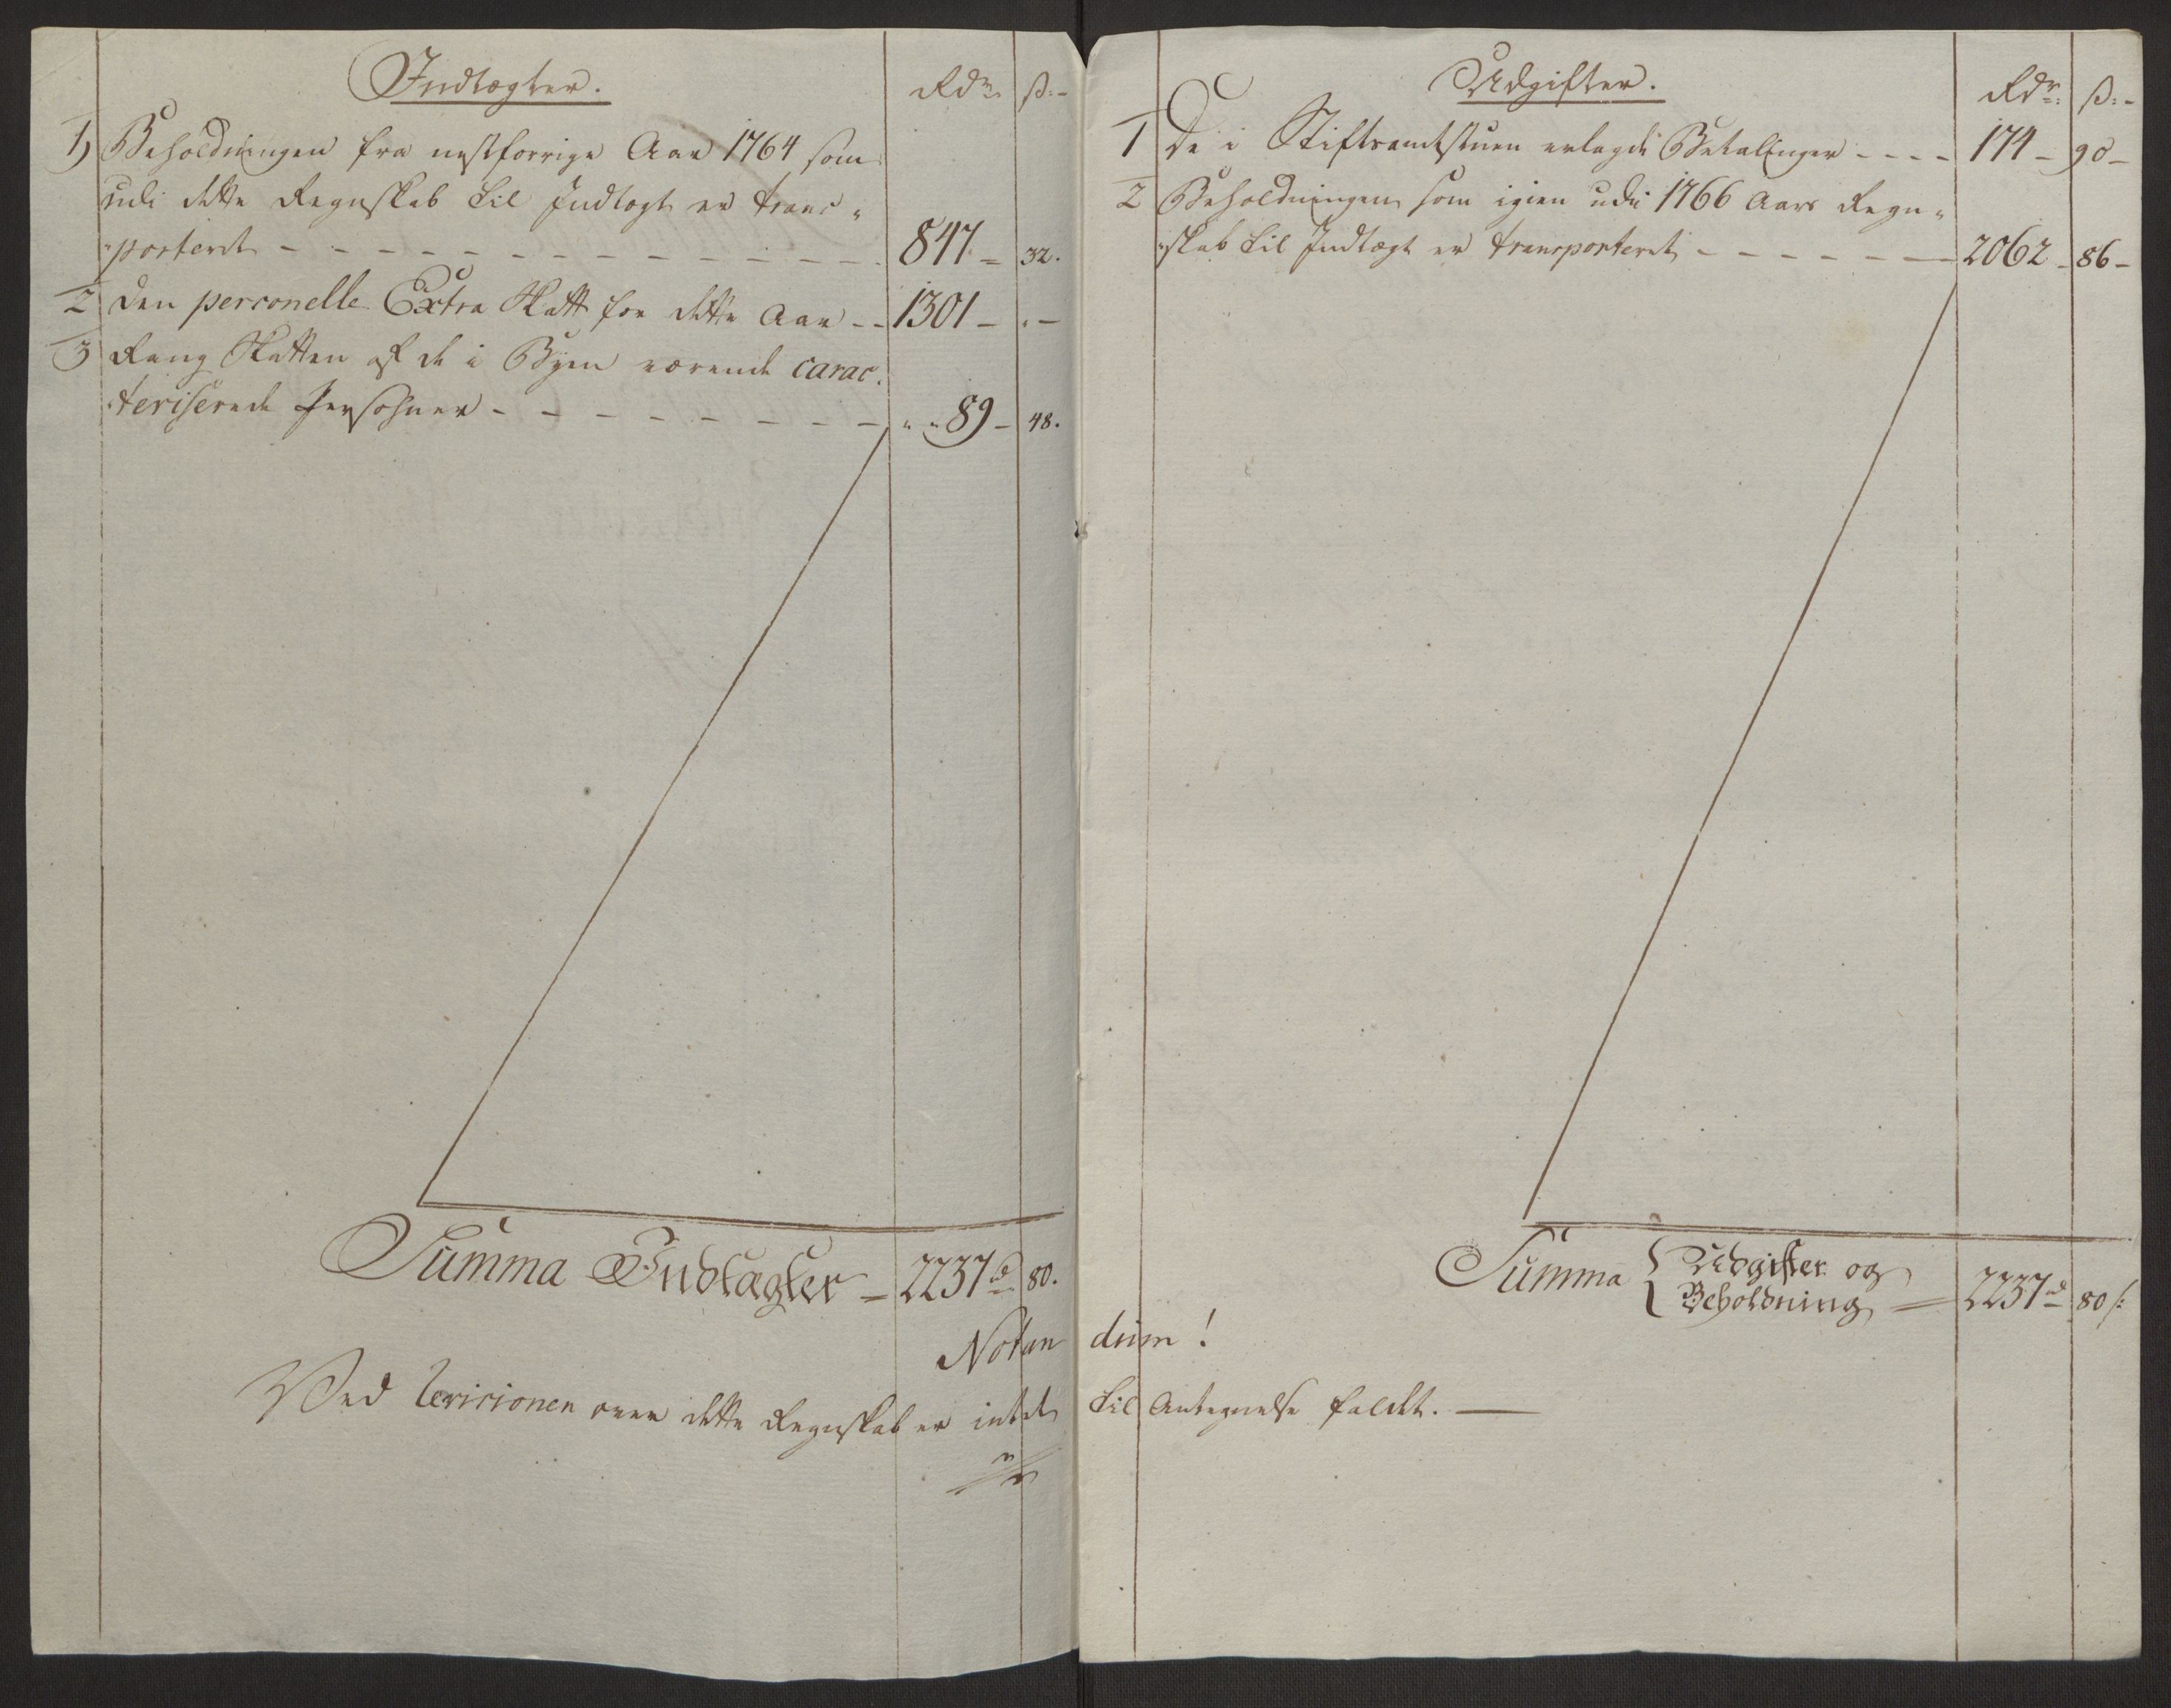 Indtægter.
Rdr ß:-
1) Beholdningen fra nestforrige Aar 1764 som
udi dette Regnskab til Indtægt er trans„
„porteret - - - - 847 - 32.
2 den personelle Extra Skatt for dette Aar - - 1301 - . -
3 Rang Skatten af de i Byen værende carac„
„teriserede Persohner - - - - „ „ 89 - 48.
Summa Indtægter = 2237 rd 80.
Udgifter.
Rdr: ß:-
1 De i Stiftsamtstuen erlagde Betalinger - - - - 174 - 90 -
2 Beholdningen som igien udi 1766 Aars Regn„
„skab til Indtægt er transporteret - - - - 2062 - 86 -
Summa { Udgifter og
Beholdning = 2237 rd 80 ß:
Notandum!
Ved Revisionen over dette Regnskab er intet til Antegnelse faldet. —